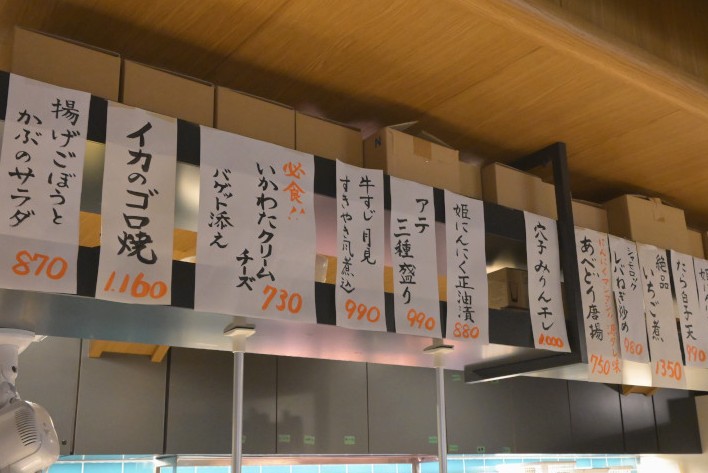 揚げごぼうと
かぶのサラダ
870
イカのゴロ焼
1.160
必食!!
いかわたクリーム
チーズ
バゲット添え
730
牛すじ月見
すきやき風煮込
990
アテ
三種盛り
990
姫にんにく正油漬
880
穴子みりん干し
1.000
あべどり唐揚
750
シャモロック
レバねぎ炒め
980
絶品
いちご煮
1350
たら白子天
990
姫にん